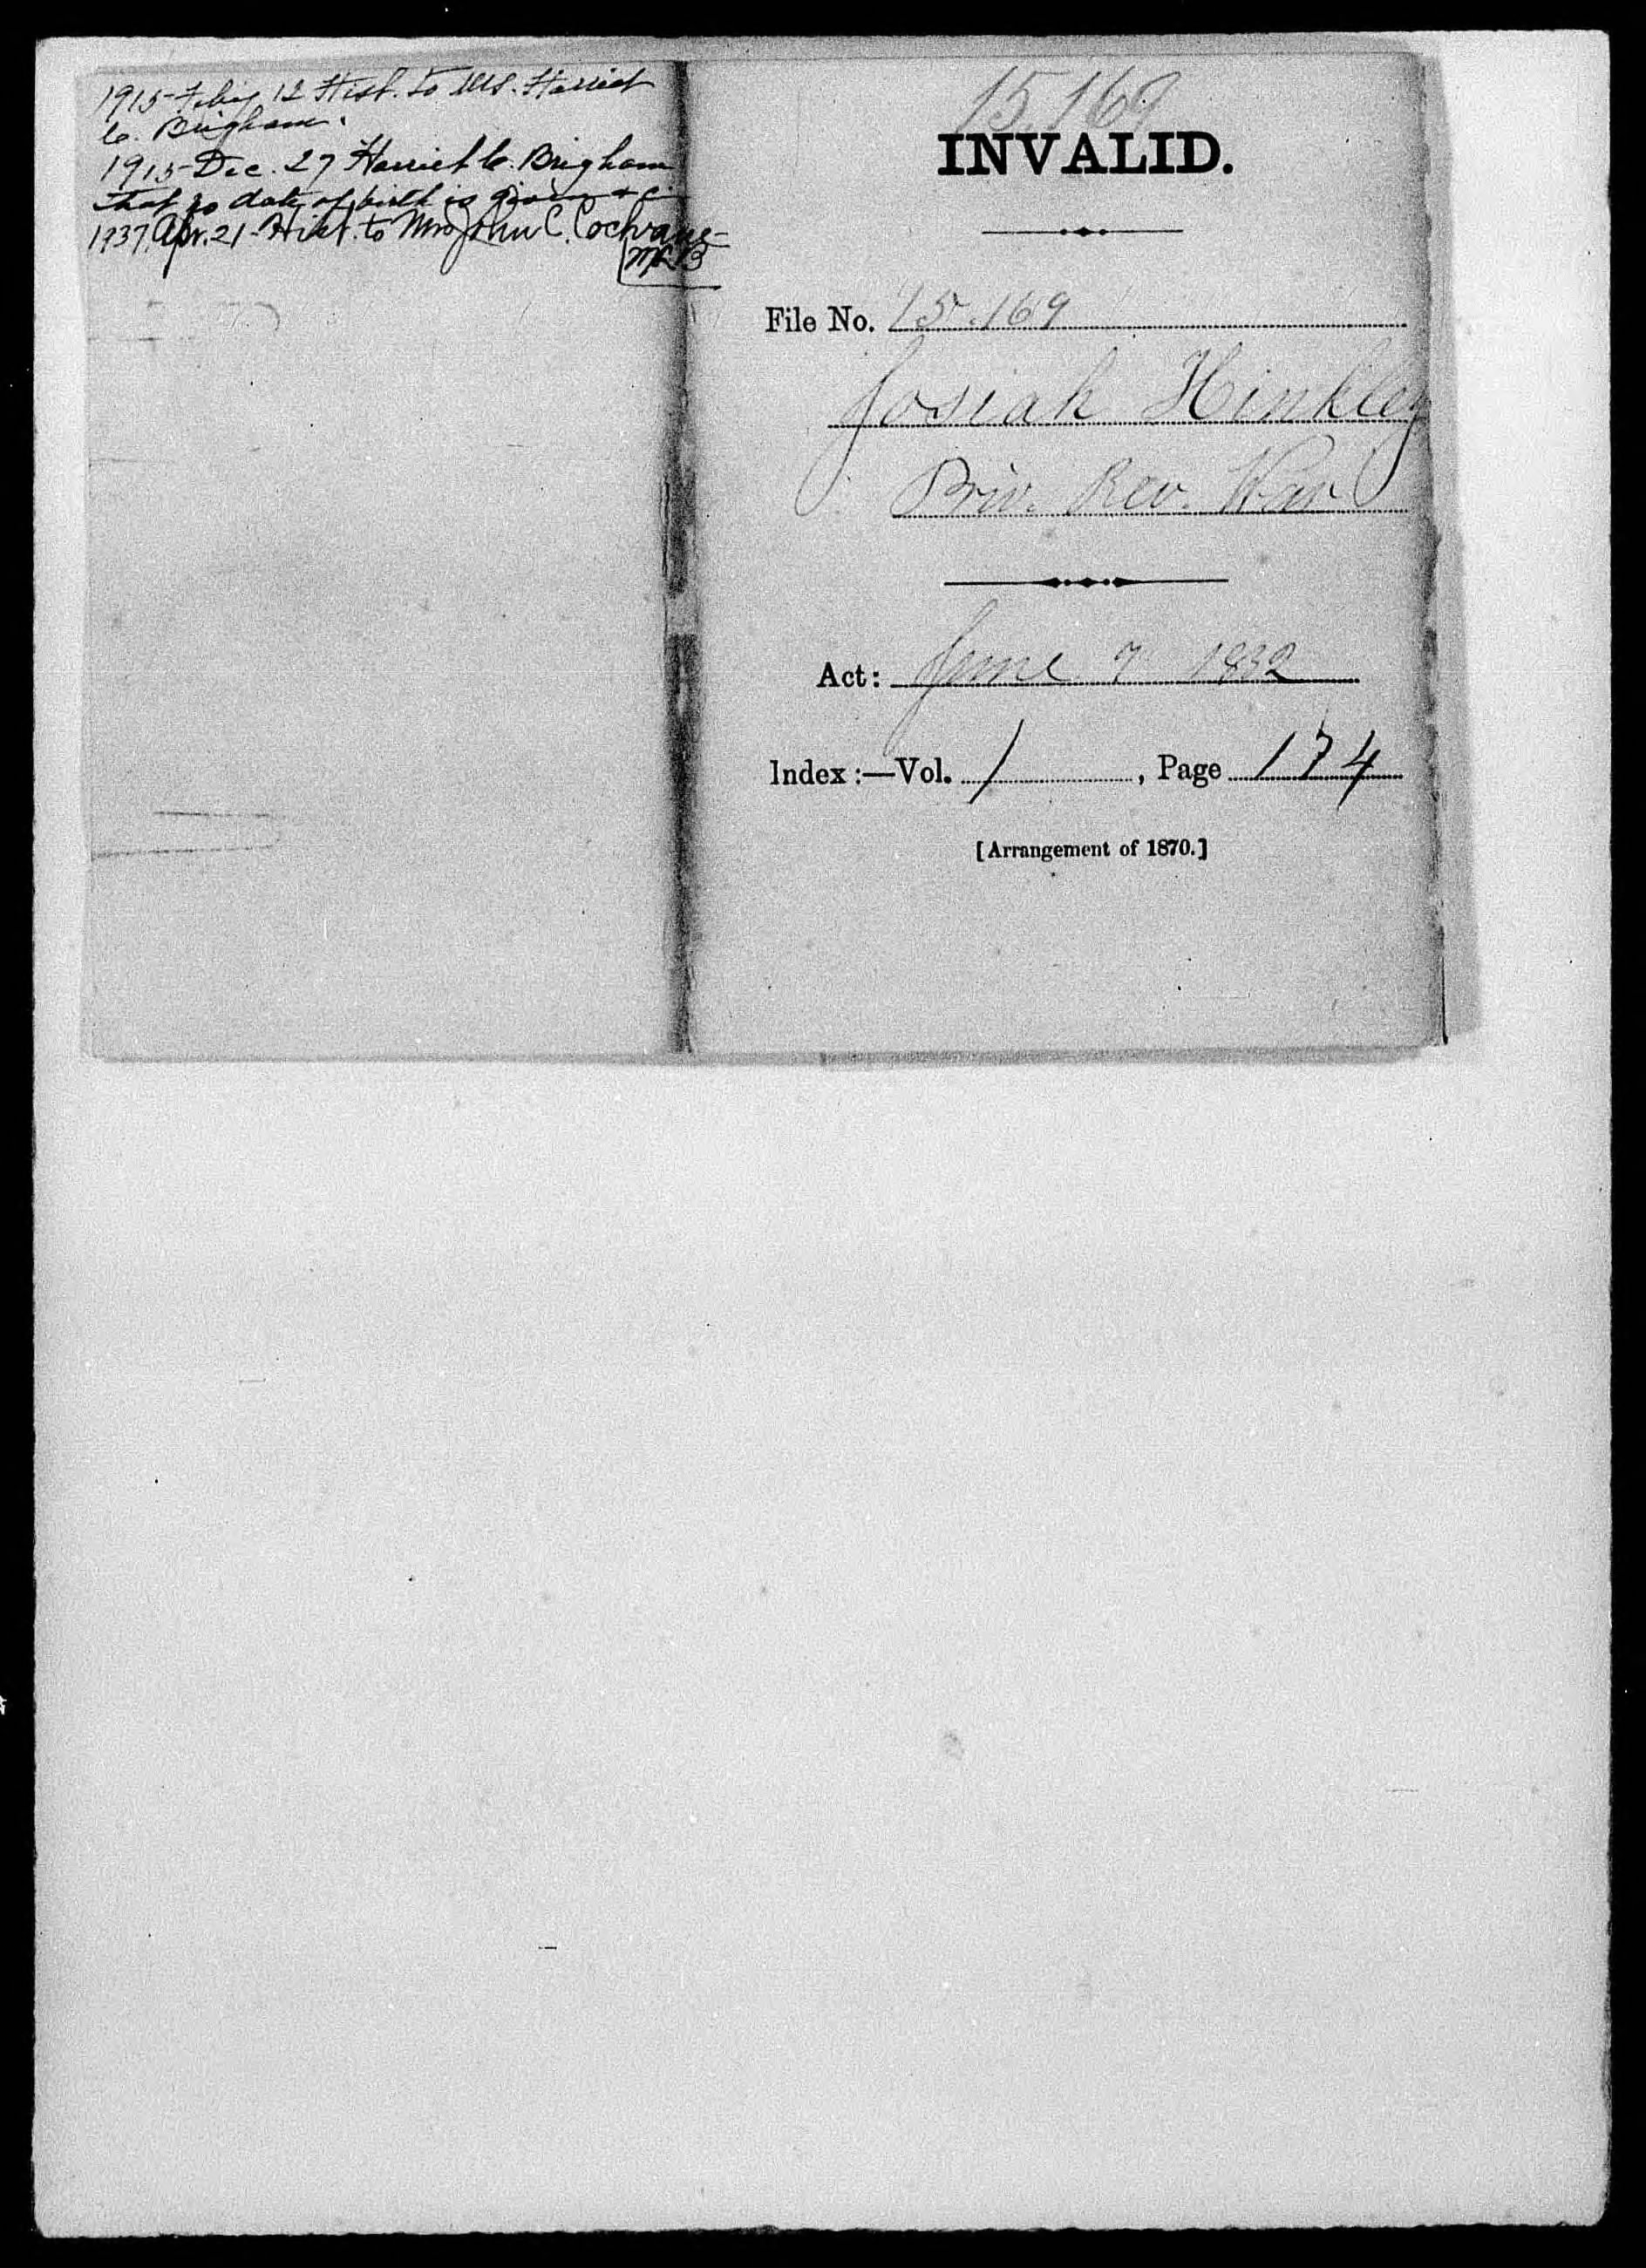 1915 Feby 12 Hist. to Mrs. Harriet
C. Brigham.
1915 Dec. 27 Harriet C. Brigham
that no date of birth is given &
1937, Apr. 21 - Hist. to Mrs John C. Cochrane
15,169
INVALID.
File No. 15.169
Josiah Hinkley
Priv. Rev. War
Act: June 7 1832
Index:—Vol. 1, Page 174
[Arrangement of 1870.]